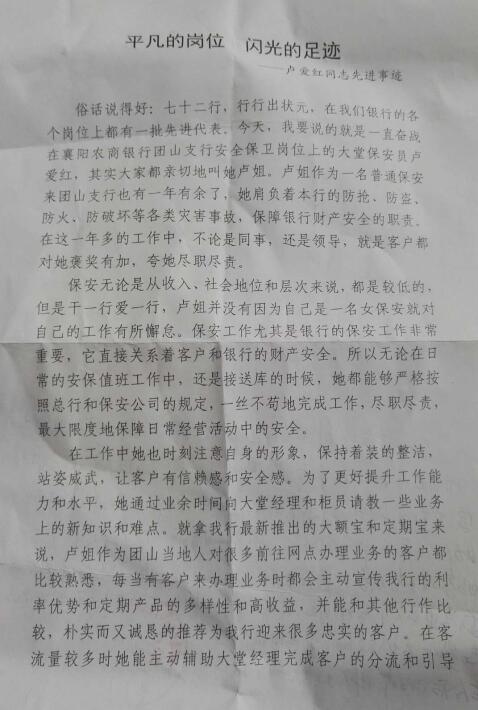 平凡的岗位 闪光的足迹
——卢爱红同志先进事迹
俗话说得好：七十二行，行行出状元，在我们银行的各
个岗位上都有一批先进代表。今天，我要说的就是一直奋战
在襄阳农商银行团山支行安全保卫岗位上的大堂保安员卢
爱红，其实大家都亲切地叫她卢姐。卢姐作为一名普通保安
来团山支行也有一年有余了，她肩负着本行的防抢、防盗、
防火、防破坏等各类灾害事故，保障银行财产安全的职责。
在这一年多的工作中，不论是同事，还是领导，就是客户都
对她褒奖有加，夸她尽职尽责。
保安无论是从收入、社会地位和层次来说，都是较低的，
但是干一行爱一行，卢姐并没有因为自己是一名女保安就对
自己的工作有所懈怠。保安工作尤其是银行的保安工作非常
重要，它直接关系着客户和银行的财产安全。所以无论在日
常的安保值班工作中，还是接送库的时候，她都能够严格按
照总行和保安公司的规定，一丝不苟地完成工作，尽职尽责，
最大限度地保障日常经营活动中的安全。
在工作中她也时刻注意自身的形象，保持着装的整洁，
站姿威武，让客户有信赖感和安全感。为了更好提升工作能
力和水平，她通过业余时间向大堂经理和柜员请教一些业务
上的新知识和难点。就拿我行最新推出的大额宝和定期宝来
说，卢姐作为团山当地人对很多前往网点办理业务的客户都
比较熟悉，每当有客户来办理业务时都会主动宣传我行的利
率优势和定期产品的多样性和高收益，并能和其他行作比
较，朴实而又诚恳的推荐为我行迎来很多忠实的客户。在客
流量较多时她能主动辅助大堂经理完成客户的分流和引导